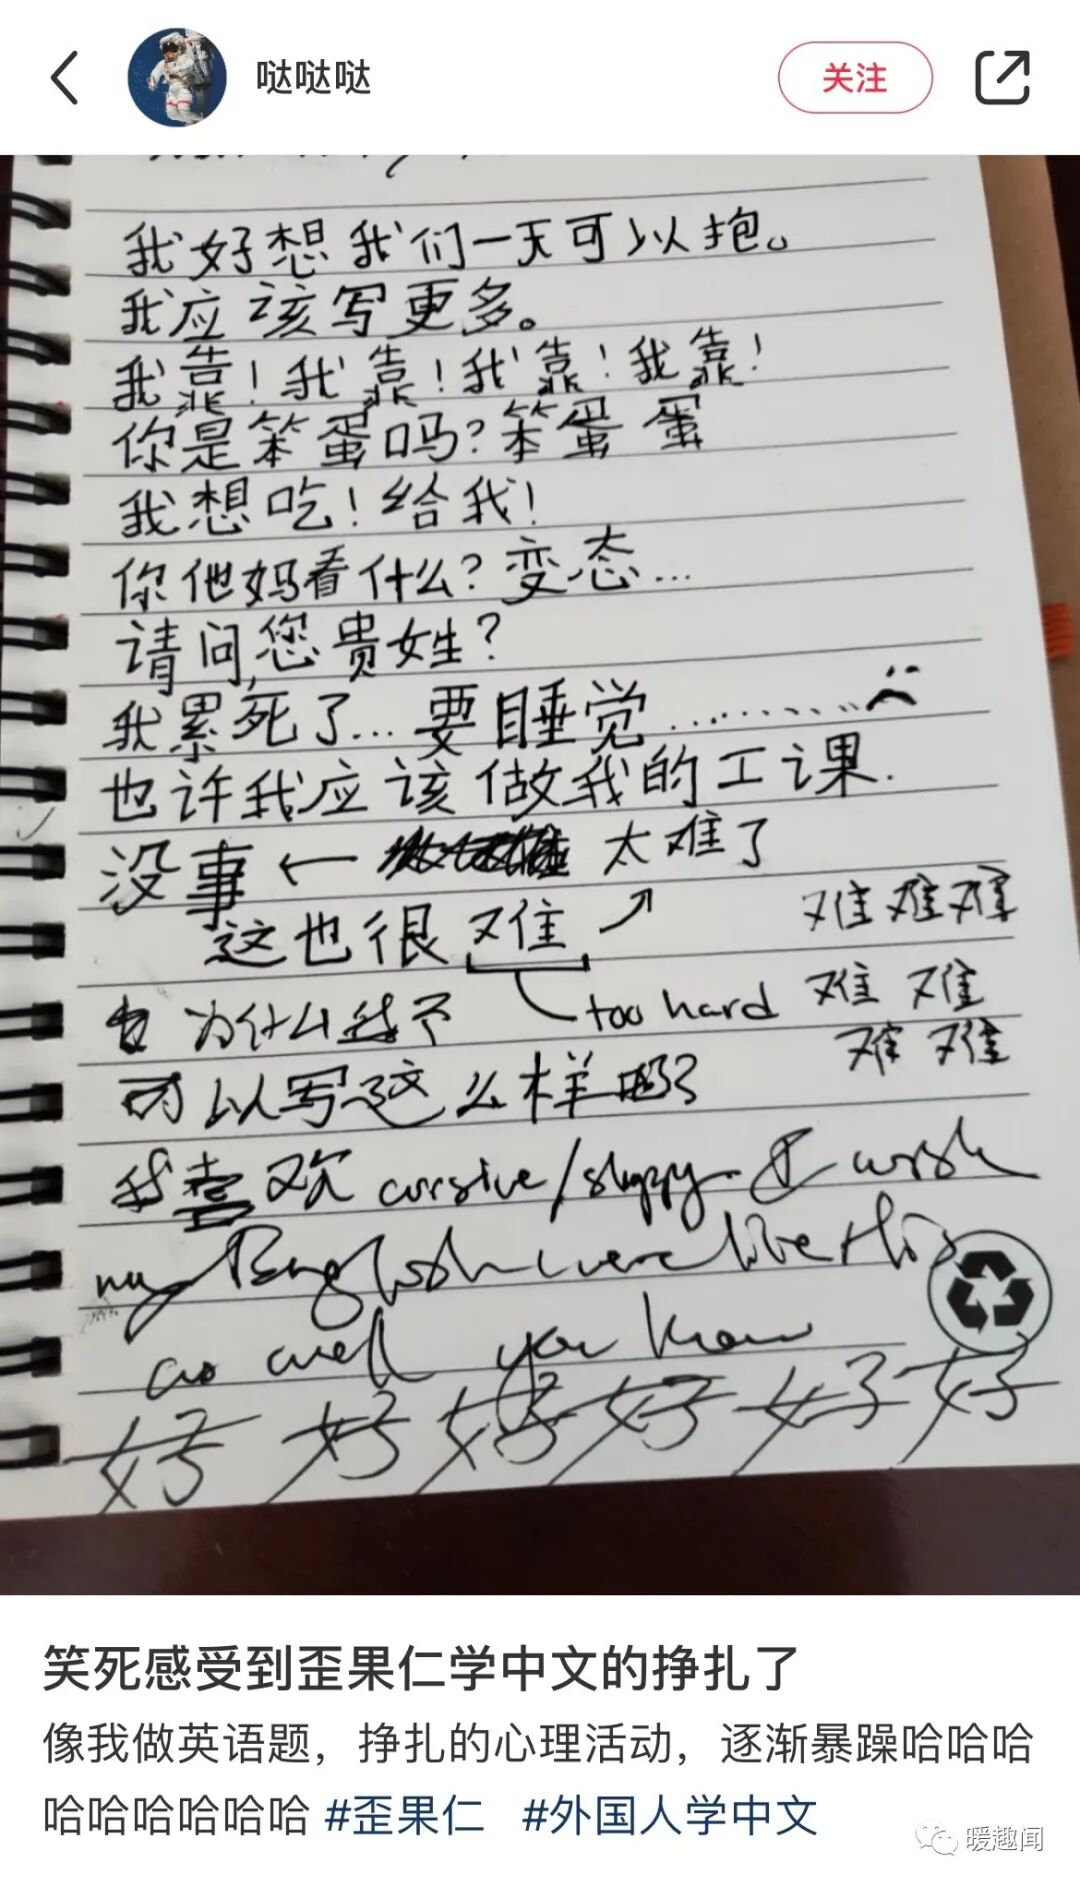 哒哒哒
关注
我好想我们一天可以抱。
我应该写更多。
我靠!我靠!我靠!我靠!
你是笨蛋吗?笨蛋 蛋
我想吃!给我!
你他妈看什么?变态...
请问,您贵姓?
我累死了...要睡觉..........
也许我应该做我的工课.
没事 ← 太难了
这也很难
难难难
为什么 不
too hard
难 难
难 难
可以写这么样吗?
我喜欢 cursive/sloppy I wish
my English were like this
as well you know
好 好 好 好 好 好
笑死感受到歪果仁学中文的挣扎了
像我做英语题，挣扎的心理活动，逐渐暴躁哈哈哈
哈哈哈哈哈哈 #歪果仁 #外国人学中文
暖趣闻